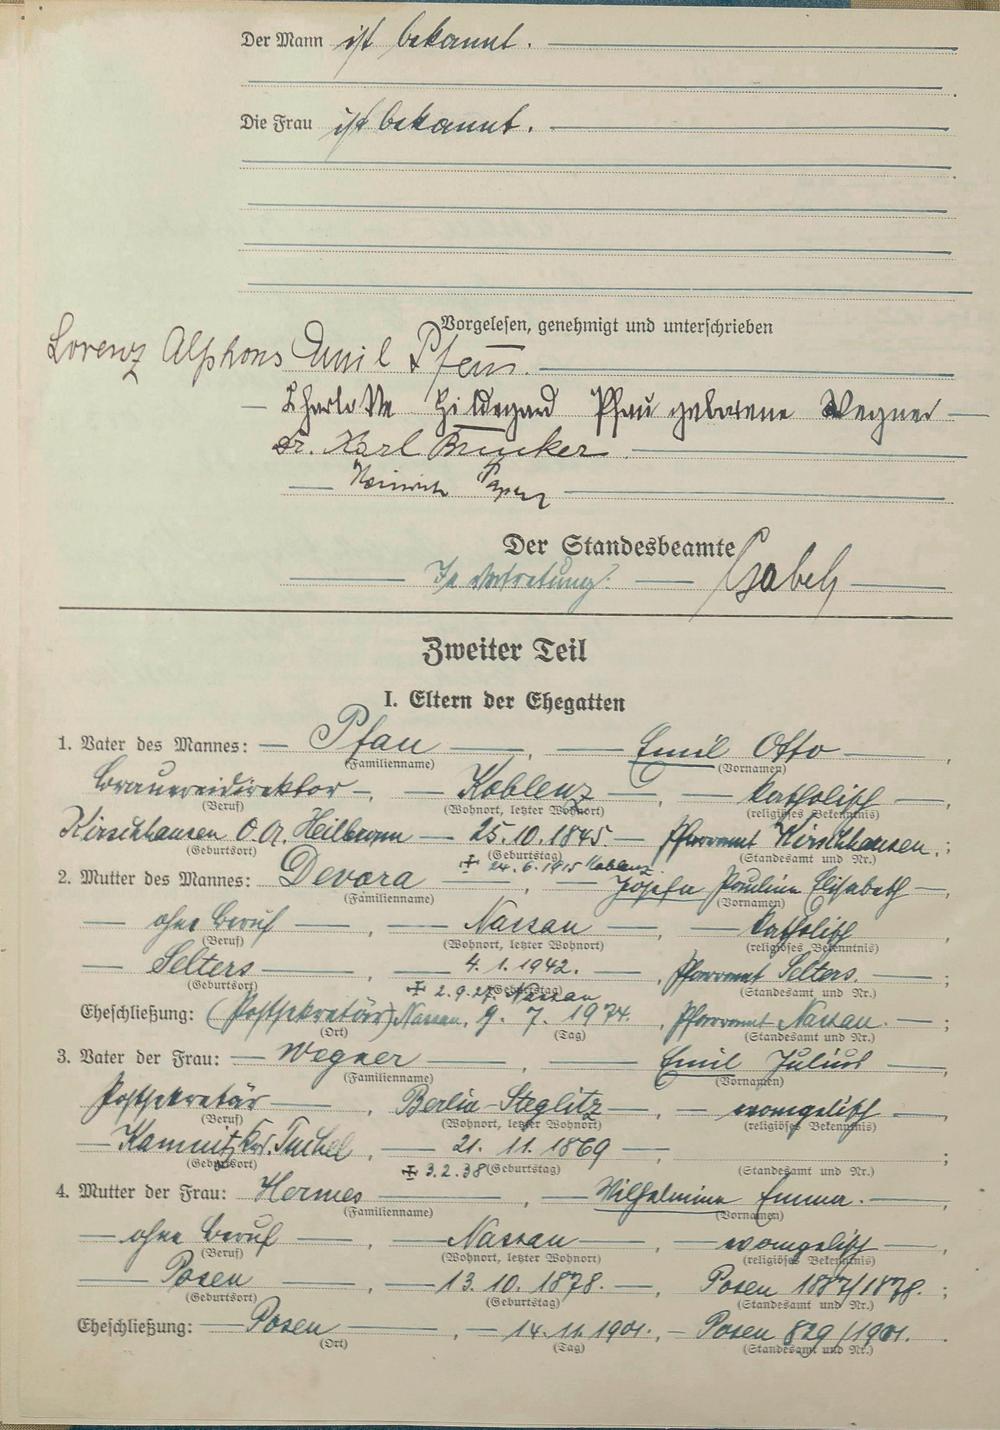 Der Mann ist bekannt.
Die Frau ist bekannt.
Vorgelesen, genehmigt und unterschrieben
Lorenz Alphons Emil Pfau.
Charlotte Hildegard Pfau geborene Wegner
Dr. Karl Brucker
Heinrich
Der Standesbeamte
In Vertretung:
Zweiter Teil
I. Eltern der Ehegatten
1. Vater des Mannes: Pfau, Emil Otto,
(Familienname) (Vornamen)
Brauereidirektor, Koblenz, katholisch,
(Beruf) (Wohnort, letzter Wohnort) (religiöses Bekenntnis)
Kirschhausen O.A. Heilbronn 25.10.1845. Pfarramt Kirschhausen.;
(Geburtsort) (Geburtstag) (Standesamt und Nr.)
+ 24.6.1915 Koblenz.
2. Mutter des Mannes: Devora, Josefa Paulina Elisabeth,
(Familienname) (Vornamen)
ohne Beruf, Nassau, katholisch,
(Beruf) (Wohnort, letzter Wohnort) (religiöses Bekenntnis)
Selters, 4.1.1942. Pfarramt Selters.;
(Geburtsort) (Geburtstag) (Standesamt und Nr.)
+ 2.9.27. Nassau
Eheschließung: (Postsekretär) Nassau, 9. 7. 1974., Pfarramt Nassau.;
(Ort) (Tag) (Standesamt und Nr.)
3. Vater der Frau: Wegner, Emil Julius,
(Familienname) (Vornamen)
Postsekretär, Berlin-Steglitz, evangelisch,
(Beruf) (Wohnort, letzter Wohnort) (religiöses Bekenntnis)
Kamnitz Krs. Tuchel, 21. 11. 1869;
(Geburtsort) (Geburtstag) (Standesamt und Nr.)
+ 3.2.38
4. Mutter der Frau: Hermes, Wilhelmine Emma.
(Familienname) (Vornamen)
ohne Beruf, Nassau, evangelisch,
(Beruf) (Wohnort, letzter Wohnort) (religiöses Bekenntnis)
Posen, 13. 10. 1878., Posen 1878.;
(Geburtsort) (Geburtstag) (Standesamt und Nr.)
Eheschließung: Posen, 14. 11. 1901., Posen 829/1901.
(Ort) (Tag) (Standesamt und Nr.)